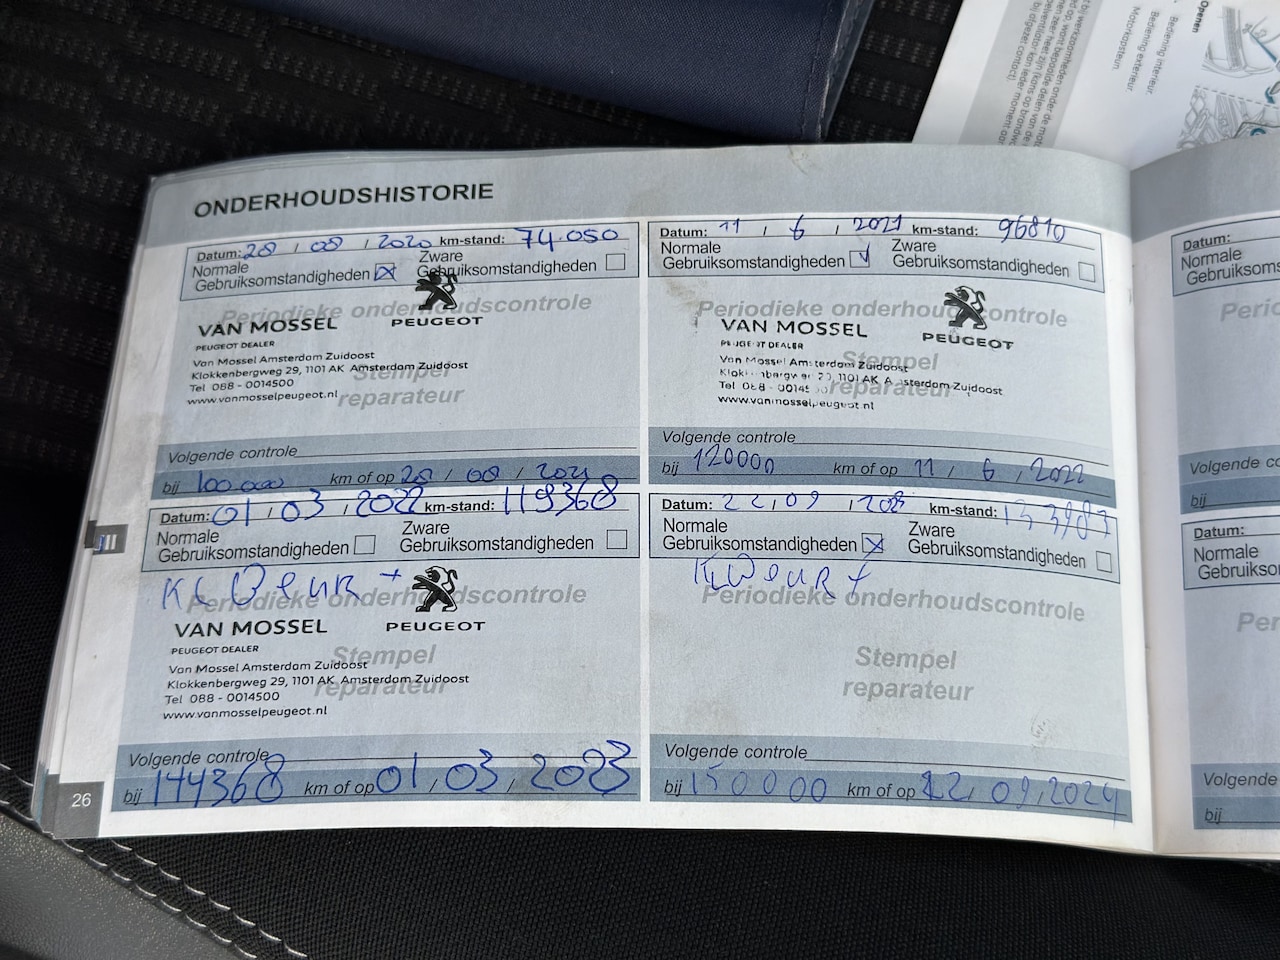 ONDERHOUDSHISTORIE
Datum: 28 / 08 / 2020 km-stand: 74.050
Normale
Gebruiksomstandigheden
Zware
Gebruiksomstandigheden
Periodieke onderhoudscontrole
VAN MOSSEL
PEUGEOT DEALER
PEUGEOT
Van Mossel Amsterdam Zuidoost
Klokkenbergweg 29, 1101 AK Amsterdam Zuidoost
Tel 088 - 0014500
www.vanmosselpeugeot.nl
Stempel
reparateur
Volgende controle
bij 100.000 km of op 28 / 08 / 2021
Datum: 11 / 6 / 2021 km-stand: 96810
Normale
Gebruiksomstandigheden
Zware
Gebruiksomstandigheden
Periodieke onderhoudscontrole
VAN MOSSEL
PEUGEOT DEALER
PEUGEOT
Van Mossel Amsterdam Zuidoost
Klokkenbergweg 29, 1101 AK Amsterdam Zuidoost
Tel 088 - 00145
www.vanmosselpeugeot.nl
Stempel
reparateur
Volgende controle
bij 120000 km of op 11 / 6 / 2022
Datum: 01 / 03 / 2022 km-stand: 119368
Normale
Gebruiksomstandigheden
Zware
Gebruiksomstandigheden
Periodieke onderhoudscontrole
VAN MOSSEL
PEUGEOT DEALER
PEUGEOT
Van Mossel Amsterdam Zuidoost
Klokkenbergweg 29, 1101 AK Amsterdam Zuidoost
Tel 088 - 0014500
www.vanmosselpeugeot.nl
Stempel
reparateur
Volgende controle
bij 144368 km of op 01 / 03 / 2023
Datum: 22 / 09 / 2023 km-stand:
Normale
Gebruiksomstandigheden
Zware
Gebruiksomstandigheden
Periodieke onderhoudscontrole
Stempel
reparateur
Volgende controle
bij 150000 km of op 22 / 09 / 2024
26
Datum:
Normale
Gebruiksoms
Volgende co
bij
Datum:
Normale
Gebruikso
Volgende
bij
Openen
Bediening interieur
Bediening exterieur
Motorkapsteun.